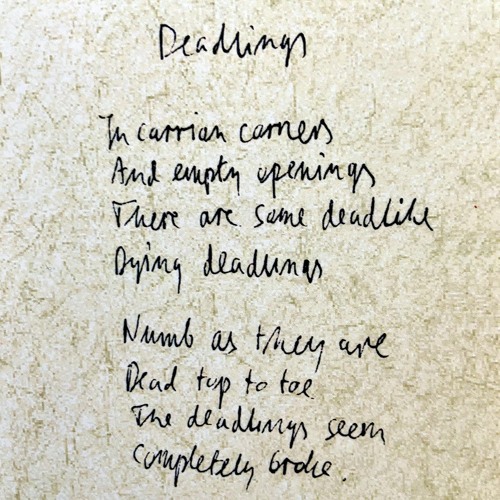 Deadlings
In carrion corners
And empty openings
There are some deadlike
Dying deadlings
Numb as they are
Dead top to toe
The deadlings seem
Completely broke.